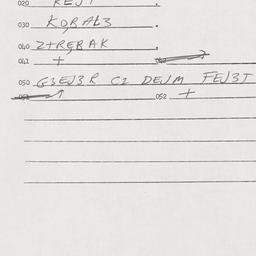 020 REJ1
030 KORAŁ3 .
040 Z+RĘBAK .
041 +
050 G3EJ3R C2 DEJM FEJ3T
052 +